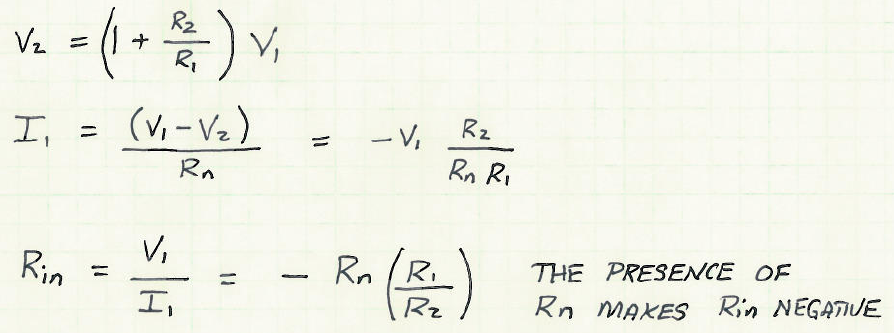 V₂ = (1 + R₂/R₁) V₁
I₁ = (V₁ - V₂)/Rn = -V₁ R₂/(Rn R₁)
Rin = V₁/I₁ = - Rn (R₁/R₂) THE PRESENCE OF
Rn MAKES Rin NEGATIVE